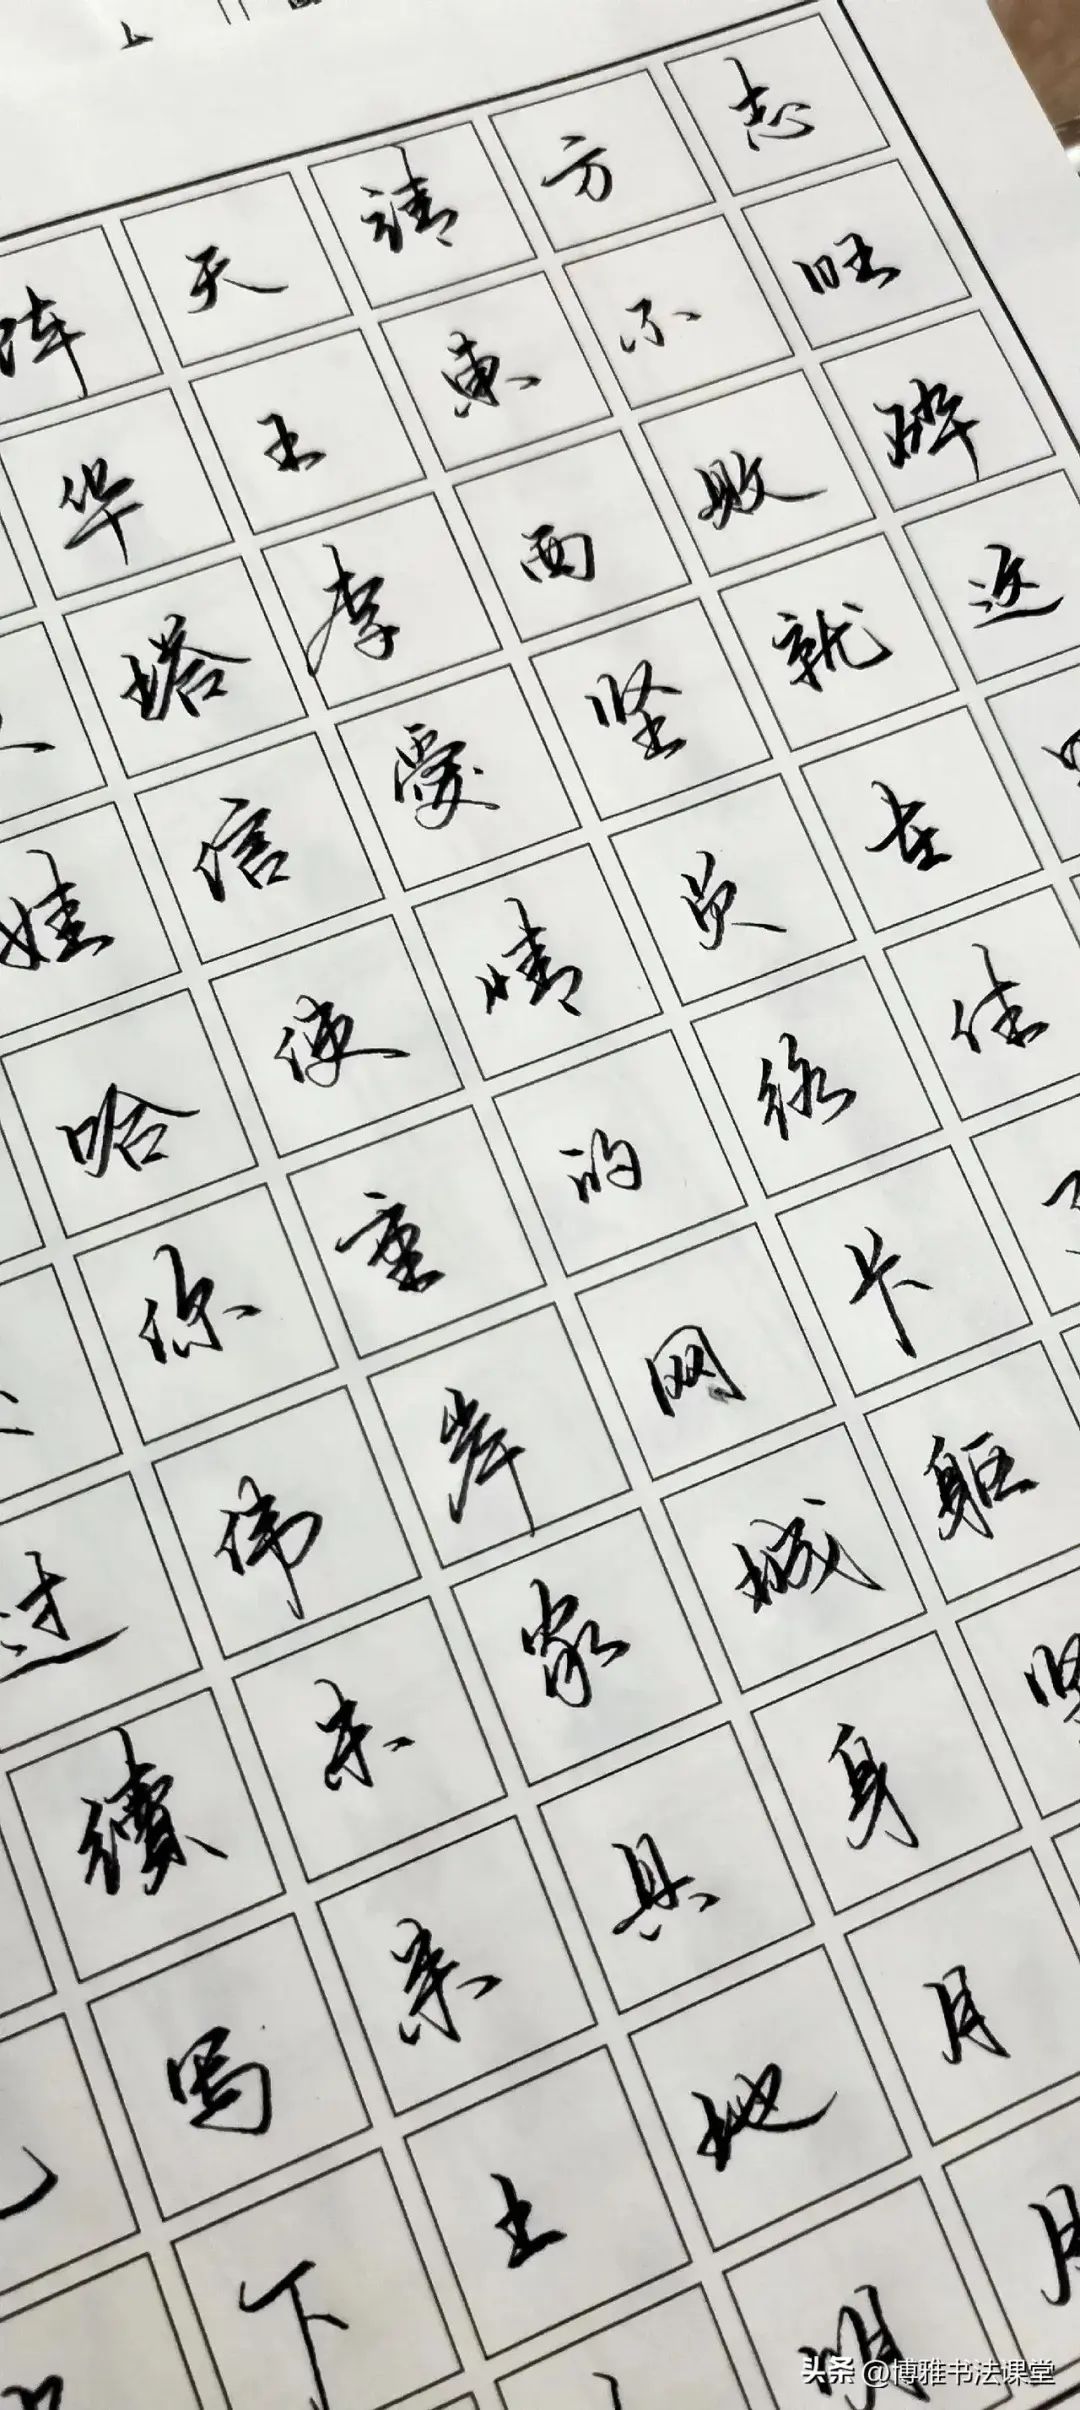 志旺碎
方不败就在佳
请東西坚员终卡躯坚
天王李愛情的网城身月月
阵华塔信使重岸家具地明
娃哈你伟未亲土
过續写下
上
头条 @博雅书法课堂